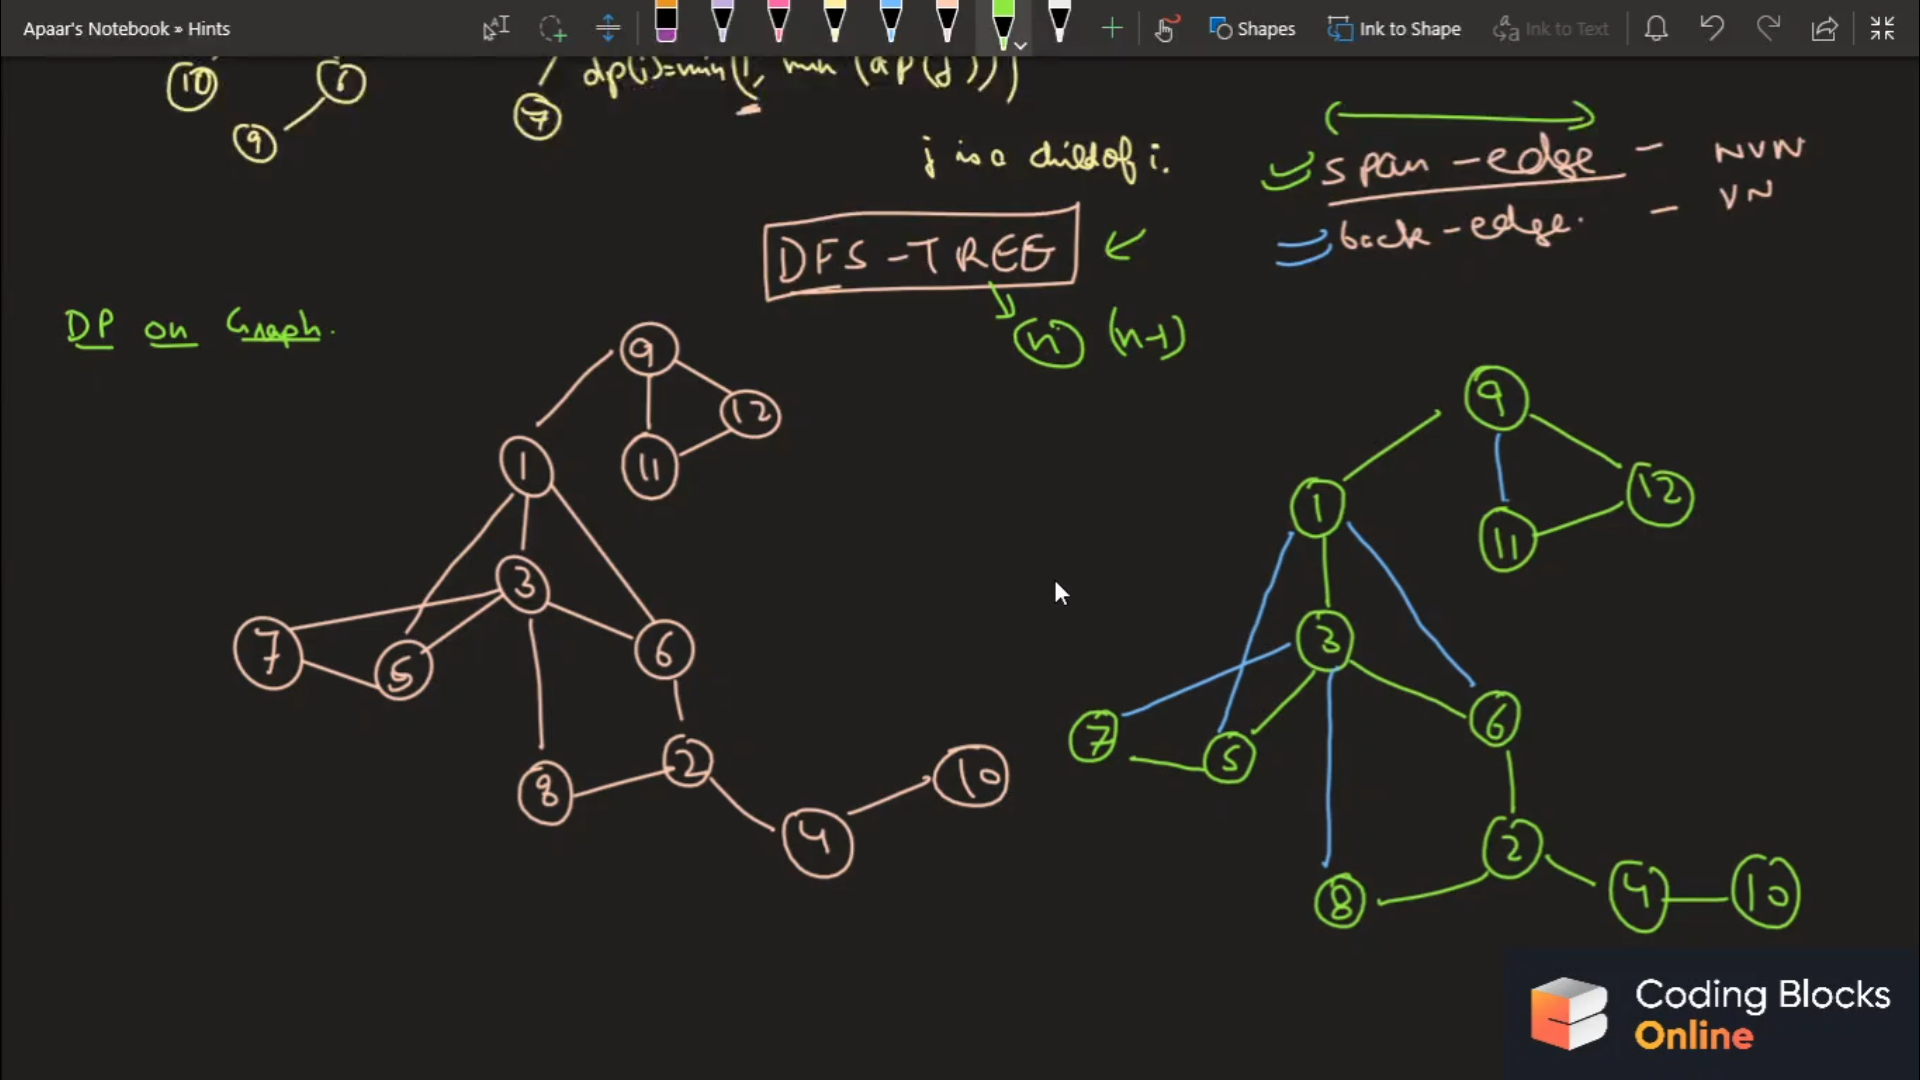 Apaar's Notebook » Hints
Shapes
Ink to Shape
Ink to Text
10
6
9
7
dp(i)=min(1, min (dp(j)))
j is a child of i.
span-edge - NVN
back-edge. - VN
DFS-TREE
n (n-1)
DP on Graph.
9
12
11
1
3
7
5
6
8
2
4
10
9
12
11
1
3
7
5
6
8
2
4
10
Coding Blocks
Online